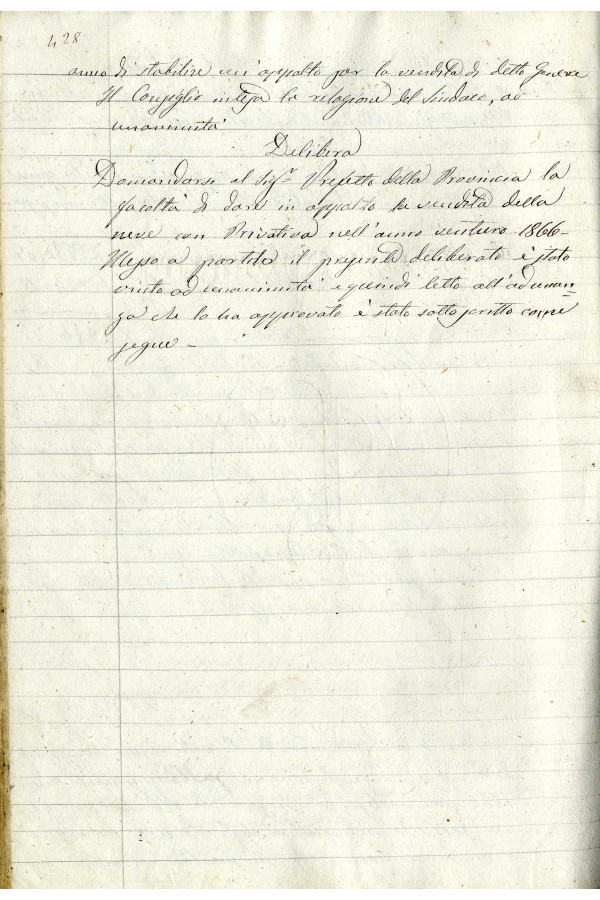 428
anno di stabilire un'appalto per la vendita di detto Genere
Il Consiglio intesa la relazione del Sindaco, ad
unanimità
Delibera
Domandarsi al Sig.r Prefetto della Provincia la
facoltà di dare in appalto la vendita della
neve con Privativa nell'anno venturo 1866-
Messo a partito il presente deliberato è stato
vinto ad unanimità e quindi letto all'adunan=
za che lo ha approvato è stato sottoscritto come
segue -